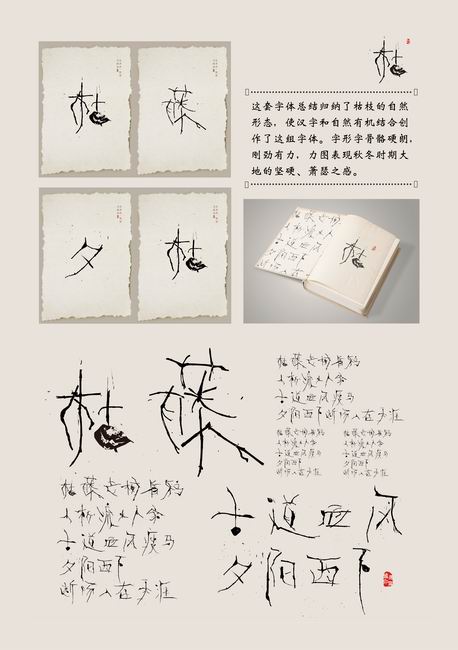 枯
枯 藤
这套字体总结归纳了枯枝的自然
形态,使汉字和自然有机结合创
作了这组字体。字形字骨骼硬朗,
刚劲有力,力图表现秋冬时期大
地的坚硬、萧瑟之感。
夕 枯
枯
枯藤
枯藤老树昏鸦
小桥流水人家
古道西风瘦马
夕阳西下断肠人在天涯
枯藤老树昏鸦
小桥流水人家
古道西风瘦马
夕阳西下
断肠人在天涯
枯藤老树昏鸦
小桥流水人家
古道西风瘦马
夕阳西下
断肠人在天涯
枯藤老树昏鸦
小桥流水人家
古道西风瘦马
夕阳西下
断肠人在天涯
古道西风
夕阳西下